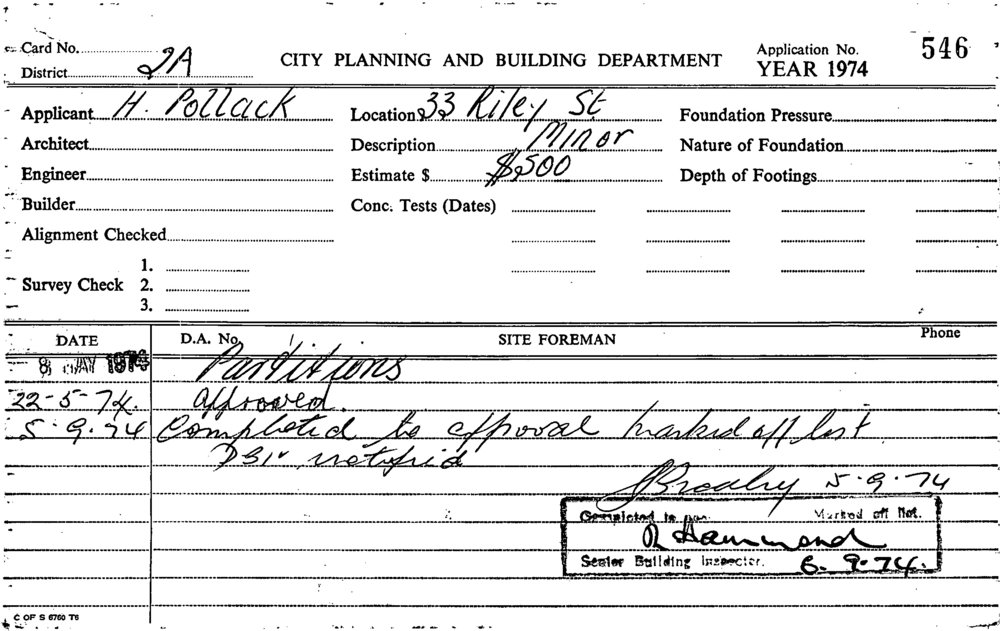 Card No.
District 2A
CITY PLANNING AND BUILDING DEPARTMENT
Application No. 546
YEAR 1974
Applicant H. Pollack
Location 33 Riley St
Foundation Pressure
Architect
Description Minor
Nature of Foundation
Engineer
Estimate $ $500
Depth of Footings
Builder
Conc. Tests (Dates)
Alignment Checked
Survey Check 1.
2.
3.
DATE D.A. No. SITE FOREMAN Phone
8 MAY 1974 Partitions
22-5-74. approved.
5.9.74 Completed to approval marked off list
notified
5.9.74
Completed to Marked off list.
R Hammond
Senior Building Inspector. 6.9.74.
C OF S 6760 T6